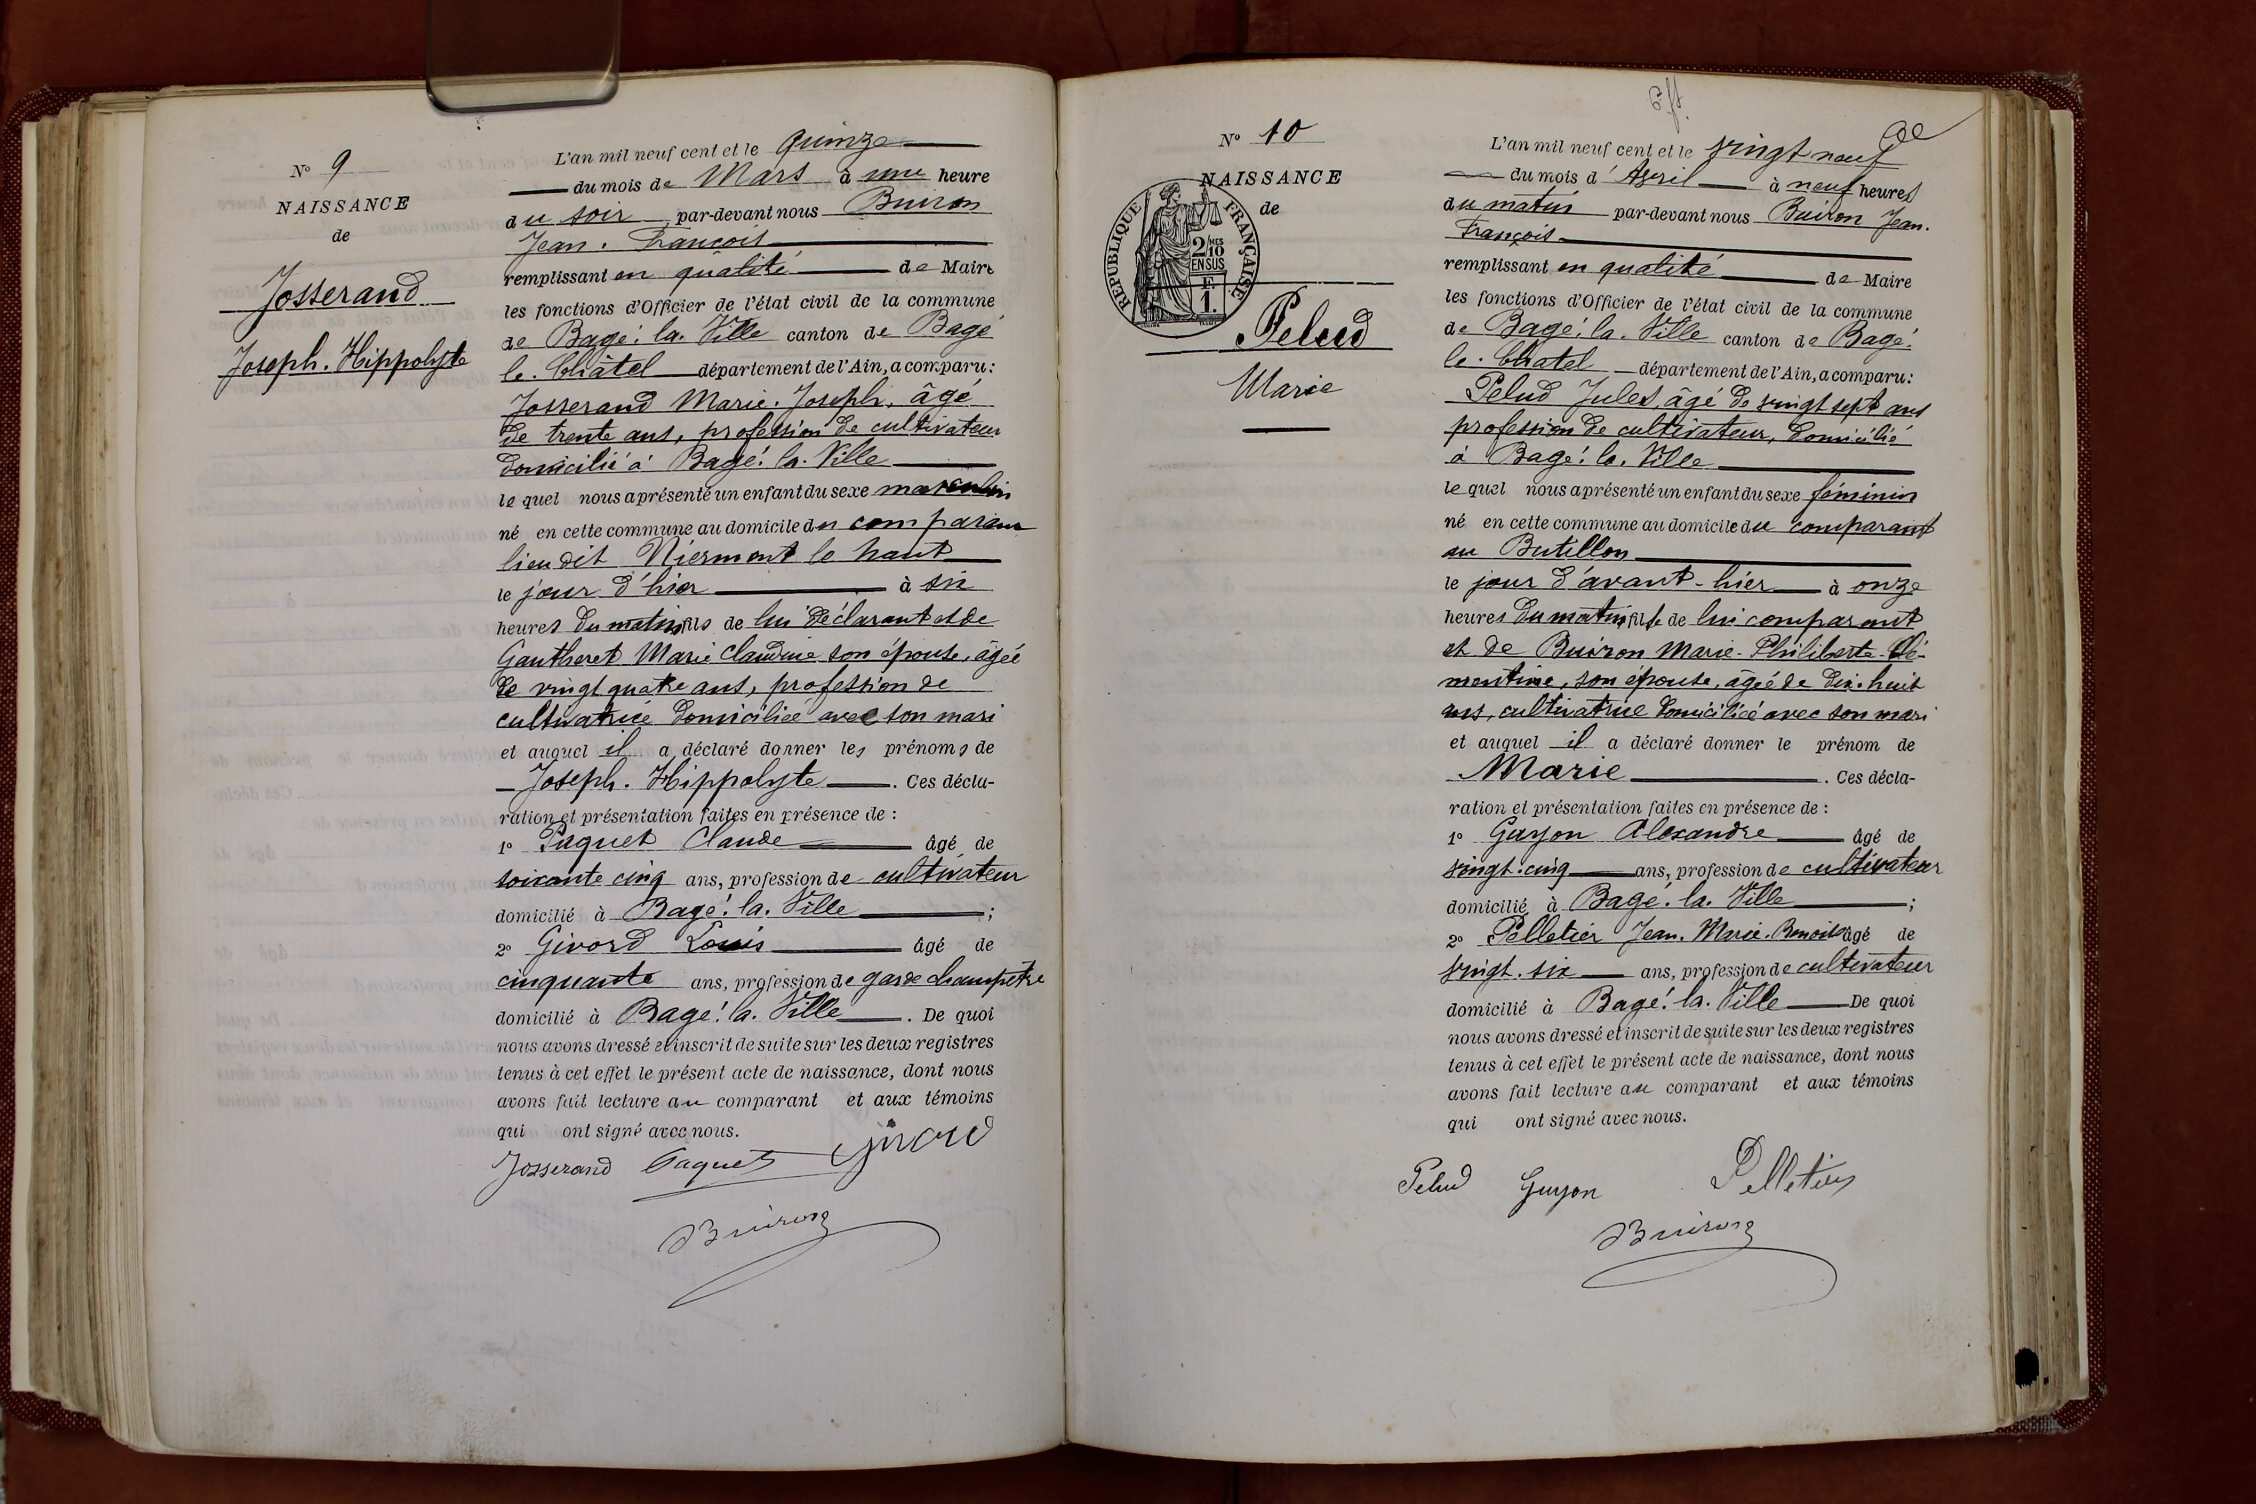 Nº 9
NAISSANCE
de
Josserand
Joseph. Hippolyte
L'an mil neuf cent et le quinze
du mois de Mars à une heure
du soir par-devant nous Buiron
Jean. François
remplissant en qualité de Maire
les fonctions d'Officier de l'état civil de la commune
de Bagé. la. Ville canton de Bagé
le. Châtel département de l'Ain, a comparu:
Josserand Marie. Joseph, âgé
de trente ans, profession de cultivateur
domicilié à Bagé. la. Ville
le quel nous a présenté un enfant du sexe masculin
né en cette commune au domicile du comparant
lieu dit Niermont le haut
le jour d'hier à six
heures du matin fils de lui déclarant et de
Gautheret Marie Claudine son épouse, âgée
de vingt quatre ans, profession de
cultivatrice domiciliée avec son mari
et auquel il a déclaré donner les prénoms de
Joseph. Hippolyte. Ces décla-
ration et présentation faites en présence de :
1º Paquet Claude âgé de
soixante cinq ans, profession de cultivateur
domicilié à Bagé. la. Ville ;
2º Givord Louis âgé de
cinquante ans, profession de garde champêtre
domicilié à Bagé. la. Ville. De quoi
nous avons dressé et inscrit de suite sur les deux registres
tenus à cet effet le présent acte de naissance, dont nous
avons fait lecture au comparant et aux témoins
qui ont signé avec nous.
Josserand Paquet Givord
Buiron
Nº 10
NAISSANCE
de
REPUBLIQUE FRANÇAISE
2/MES
10
EN SUS
F.
1.
Pelud
Marie
L'an mil neuf cent et le vingt neuf
du mois d'Avril à neuf heures
du matin par-devant nous Buiron Jean.
François
remplissant en qualité de Maire
les fonctions d'Officier de l'état civil de la commune
de Bagé. la. Ville canton de Bagé.
le. Châtel département de l'Ain, a comparu:
Pelud Jules, âgé de vingt sept ans
profession de cultivateur, domicilié
à Bagé. la. Ville
le quel nous a présenté un enfant du sexe féminin
né en cette commune au domicile du comparant
au Butillon
le jour d'avant-hier à onze
heures du matin fille de lui comparant
et de Buiron Marie-Philiberte-Clé-
mentine, son épouse, âgée de dix. huit
ans, cultivatrice domiciliée avec son mari
et auquel il a déclaré donner le prénom de
Marie. Ces décla-
ration et présentation faites en présence de :
1º Guyon Alexandre âgé de
vingt. cinq ans, profession de cultivateur
domicilié à Bagé. la. Ville ;
2º Pelletier Jean. Marie. Benoit âgé de
vingt. six ans, profession de cultivateur
domicilié à Bagé. la. Ville De quoi
nous avons dressé et inscrit de suite sur les deux registres
tenus à cet effet le présent acte de naissance, dont nous
avons fait lecture au comparant et aux témoins
qui ont signé avec nous.
Pelud Guyon Pelletier
Buiron